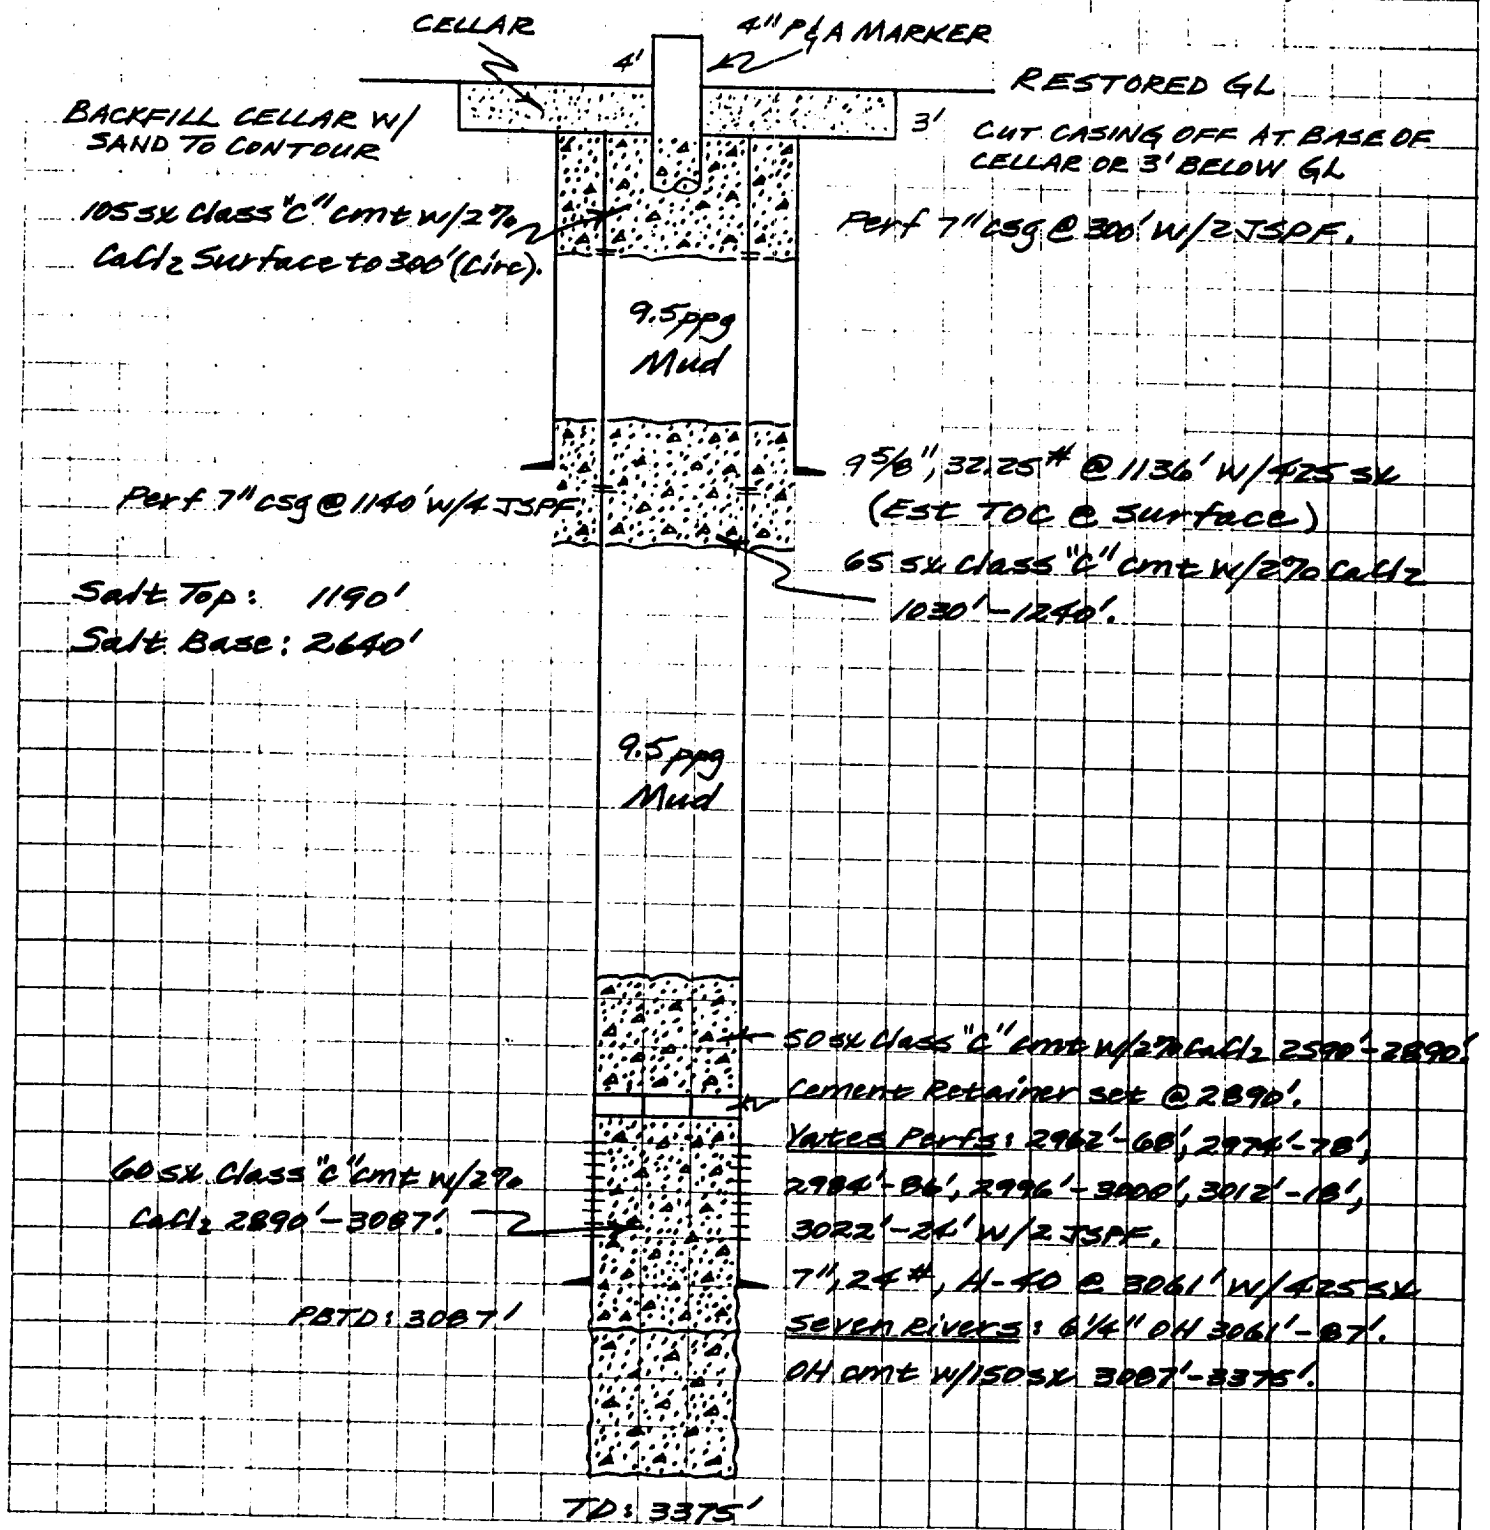 CELLAR
4" P&A MARKER
4'
RESTORED GL
BACKFILL CELLAR W/
SAND TO CONTOUR
3'
CUT CASING OFF AT BASE OF
CELLAR OR 3' BELOW GL
105 sx Class "C" cmt w/2%
CaCl2 Surface to 300' (Circ).
Perf 7" csg @ 300' w/2 JSPF.
9.5 ppg
Mud
9 5/8", 32.25# @ 1136' w/425 sx
(Est TOC @ surface)
Perf 7" csg @ 1140' w/4 JSPF
65 sx Class "C" cmt w/2% CaCl2
1030'-1240'.
Salt Top: 1190'
Salt Base: 2640'
9.5 ppg
Mud
50 sx Class "C" cmt w/2% CaCl2 2590'-2890'.
Cement Retainer set @ 2890'.
Yates Perfs: 2962'-68', 2974'-78',
2984'-86', 2996'-3000', 3012'-18',
3022'-24' w/2 JSPF.
60 sx Class "C" cmt w/2%
CaCl2 2890'-3087'.
7", 24#, H-40 @ 3061' w/425 sx
PBTD: 3087'
Seven Rivers: 6 1/4" OH 3061'-87'.
OH cmt w/150 sx 3087'-3375'.
TD: 3375'